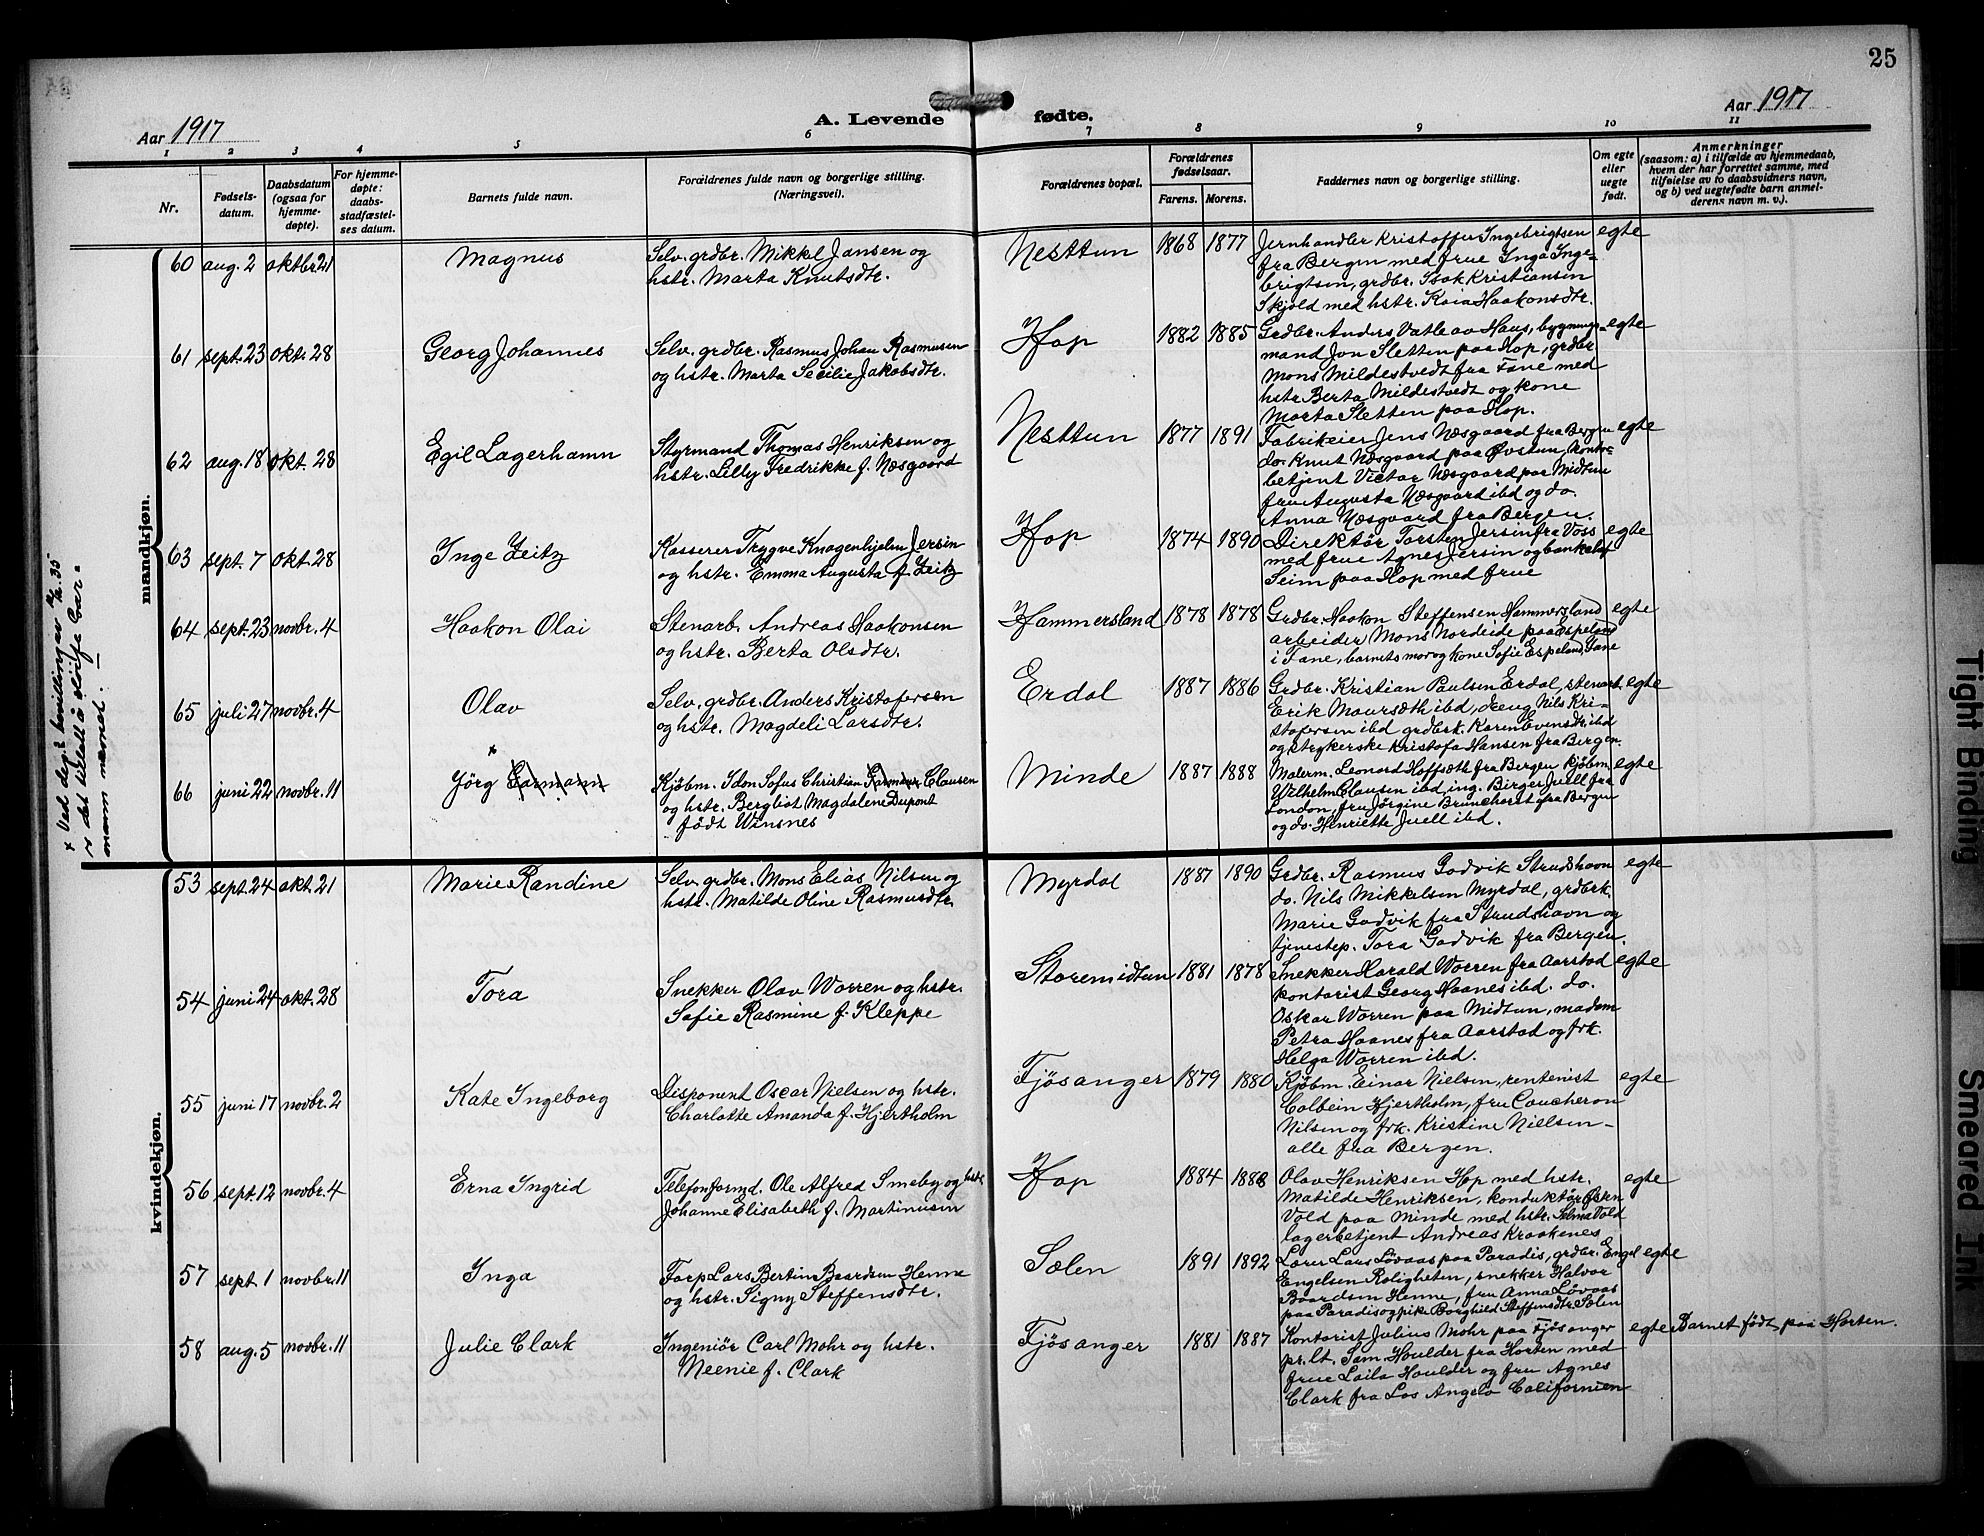 25
Aar 1917
A. Levende fødte.
Aar 1917
1 2 3 4 5 6 7 8 9 10 11
Nr.
Fødsels-
datum.
Daabsdatum
(ogsaa for
hjemme-
døpte).
For hjemme-
døpte:
daabs-
stadfæstel-
ses datum.
Barnets fulde navn.
Forældrenes fulde navn og borgerlige stilling.
(Næringsvei).
Forældrenes bopæl.
Forældrenes
fødselsaar.
Farens. Morens.
Faddernes navn og borgerlige stilling.
Om egte
eller
uegte
født.
Anmerkninger
(saasom: a) i tilfælde av hjemmedaab,
hvem der har forrettet samme, med
tilføielse av to daabsvidners navn,
og b) ved uegtefødte barn anmel-
derens navn m. v.).
mandkjøn.
60 aug. 2 oktbr 21 Magnus
Selv. grdbr. Mikkel Jansen og
hstr. Marta Knutsdtr.
Nesttun 1868 1877
Jernhandler Kristoffer Ingebrigtsen
fra Bergen med frue Inga Inge-
brigtsen, grdbr. Isak Kristiansen
Skjold med hstr. Kaia Haakonsdtr.
egte
61 sept. 23 okt. 28 Georg Johannes
Selv. grdbr. Rasmus Johan Rasmussen
og hstr. Marta Secilie Jakobsdtr.
Hop 1882 1885
Grdbr. Anders Vatle av Haus, bygnings-
mand Jon Sletten paa Hop, grdbr
Mons Mildestvedt fra Fane med
hstr Berta Mildestvedt og kone
Marta Sletten paa Hop.
egte
62 aug. 18 okt. 28 Egil Lagerhamn
Styrmand Thomas Henriksen og
hstr. Lilly Fredrikke f. Næsgaard
Nesttun 1877 1891
Fabrikeier Jens Næsgaard fra Bergen
do. Knut Næsgaard paa Øvstun, kontor-
betjent Victor Næsgaard paa Midtun
fru Augusta Næsgaard ibd og do.
Anna Næsgaard fra Bergen.
egte
63 sept. 7 okt. 28 Inge Zeitz
Kasserer Trygve Knagenhjelm Jersin
og hstr. Emma Augusta f. Zeitz
Hop 1874 1890
Direktør Torsten Jersin fra Voss
med frue Agnes Jersin og bankchef
Seim paa Hop med frue
egte
64 sept. 23 novbr. 4 Haakon Olai
Stenarb. Andreas Haakonsen
og hstr. Berta Olsdtr.
Hammersland 1878 1878
Grdbr. Haakon Steffensen Hammersland
arbeider Mons Nordeide paa Espeland
i Fane, barnets mor og kone Sofie Espeland, Fane
egte
65 juli 27 novbr. 4 Olav
Selv. grdbr. Anders Kristofersen
og hstr. Magdeli Larsdtr.
Erdal 1887 1886
Grdbr. Kristian Paulsen Erdal, stenarb.
Erik Maursæth ibd, dreng Nils Kri-
stofersen ibd grdbrsk. Karen Evensdtr. ibd
og strykerske Kristofa Hansen fra Bergen.
egte
66 juni 22 novbr. 11 × Jörg Garmann
Kjøbm. Idon Sofus Christian Garmann Clausen
og hstr. Bergliot Magdalene Dupont
født Winsnes
Minde 1887 1888
Malerm. Leonard Hoffsæth fra Bergen kjøbm.
Wilhelm Clausen ibd ing. Birger Juell fra
London, fru Jörgine Brunchorst fra Bergen
og do. Henriette Juell ibd.
egte
× Ved dep.s bevillinger
er det tillatt å sløife Gar-
mann navnet. —
kvindekjøn.
53 sept. 24 okt. 21 Marie Randine
Selv. grdbr. Mons Elias Nilsen og
hstr. Matilde Oline Rasmusdtr
Myrdal 1887 1890
Grdbr. Rasmus Godvik Strudshavn
do. Nils Mikkelsen Myrdal, grdbrk.
Marie Godvik fra Strudshavn og
tjenestep. Tora Godvik fra Bergen.
egte
54 juni 24 okt. 28 Tora
Snekker Olav Worren og hstr.
Sofie Rasmine f. Kleppe
Storemidtun 1881 1878
Snekker Harald Worren fra Aarstad
kontorist Georg Haanes ibd. do.
Oskar Worren paa Midtun, madam
Petra Haanes fra Aarstad og frk.
Helga Worren ibd.
egte
55 juni 17 novbr. 2 Kate Ingeborg
Disponent Oscar Nielsen og hstr.
Charlotte Amanda f. Hjertholm
Fjösanger 1879 1880
Kjøbm. Einar Nielsen, rentenist
Colbein Hjertholm, fru Coucheron
Nilsen og frk. Kristine Nielsen -
alle fra Bergen.
egte
56 sept. 12 novbr. 4 Erna Ingrid
Telefonformd. Ole Alfred Smeby og hstr
Johanne Elisabeth f. Martinusen
Hop 1884 1888
Olav Henriksen Hop med hstr.
Matilde Henriksen, konduktør
Vold paa Minde med hstr. Selma Vold
lagerbetjent Andreas Kraakenes
egte
57 sept. 1 novbr. 11 Inga
Farp Lars Bertin Baardsen Henne
og hstr. Signy Steffensdtr.
Sælen 1891 1892
Lærer Lars Lövaas paa Paradis, grdbr. Engel
Engelsen Roligheten, snekker Halvor
Baardsen Henne, fru Anna Lövaas
paa Paradis og pike Borghild Steffensdtr Sælen
egte
58 aug. 5 novbr. 11 Julie Clark
Ingeniör Carl Mohr og hstr.
Neenie f. Clark
Fjösanger 1881 1887
Kontorist Julius Mohr paa Fjösanger
pr. lt. Sam. Houlder fra Horten med
frue Laila Houlder og fru Agnes
Clark fra Los Angelo Californien
egte
Barnet født paa Horten.
Tight Binding
Smeared Ink